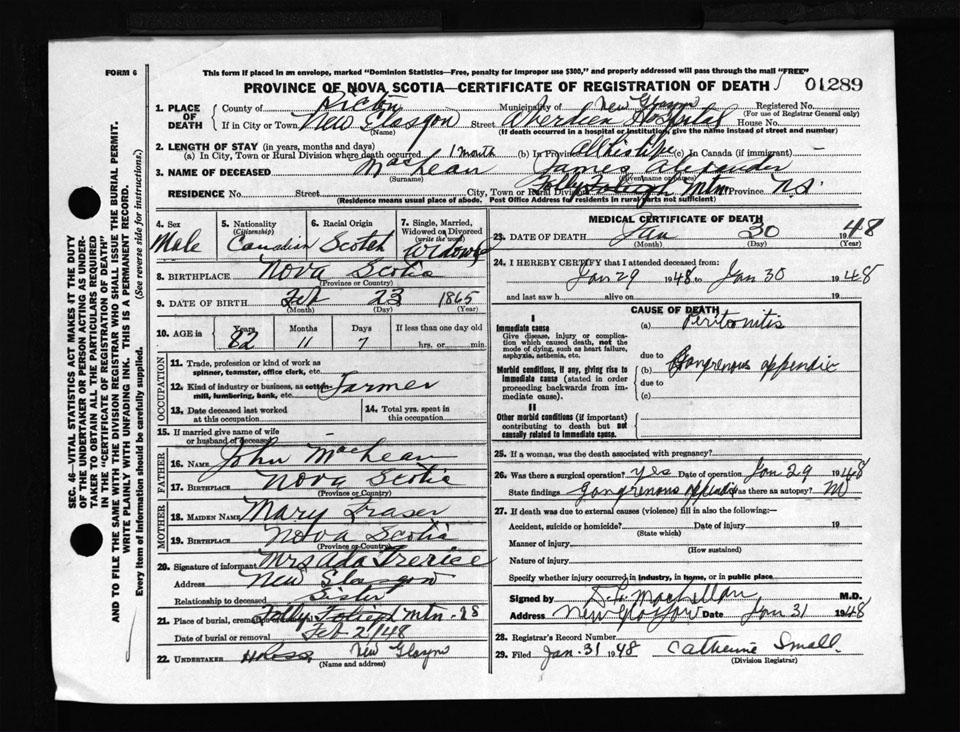 FORM 6
This form if placed in an envelope, marked "Dominion Statistics—Free, penalty for improper use $300," and properly addressed will pass through the mail "FREE"
PROVINCE OF NOVA SCOTIA—CERTIFICATE OF REGISTRATION OF DEATH 01289
1. PLACE OF DEATH County of Pictou Municipality of New Glasgow Registered No.
(For use of Registrar General only)
If in City or Town New Glasgow Street Aberdeen Hospital House No.
(Name) (If death occurred in a hospital or institution, give the name instead of street and number)
2. LENGTH OF STAY (in years, months and days)
(a) In City, Town or Rural Division where death occurred 1 month (b) In Province all his life (c) In Canada (if immigrant)
3. NAME OF DECEASED MacLean James Alexander
(Surname) (Given name or names)
RESIDENCE No. Street City, Town or Rural Division Mtn Province N.S.
(Residence means usual place of abode. Post Office Address for residents in rural parts not sufficient)
4. Sex Male
5. Nationality (Citizenship) Canadian
6. Racial Origin Scotch
7. Single, Married, Widowed or Divorced (write the word) Widower
8. BIRTHPLACE Nova Scotia
(Province or Country)
9. DATE OF BIRTH Feb 23 1865
(Month) (Day) (Year)
10. AGE in Years 82 Months 11 Days 7 If less than one day old
hrs. or min.
OCCUPATION
11. Trade, profession or kind of work as spinner, teamster, office clerk, etc.
12. Kind of industry or business, as cotton mill, lumbering, bank, etc. Farmer
13. Date deceased last worked at this occupation
14. Total yrs. spent in this occupation
15. If married give name of wife or husband of deceased
FATHER
16. NAME John MacLean
17. BIRTHPLACE Nova Scotia
(Province or Country)
MOTHER
18. MAIDEN NAME Mary Fraser
19. BIRTHPLACE Nova Scotia
(Province or Country)
20. Signature of informant Mrs Ada
Address New Glasgow
Relationship to deceased Sister
21. Place of burial, cremation or removal Folly Mtn
Date of burial or removal Feb 2/48
22. UNDERTAKER H Ross New Glasgow
(Name and address)
MEDICAL CERTIFICATE OF DEATH
23. DATE OF DEATH Jan 30 1948
(Month) (Day) (Year)
24. I HEREBY CERTIFY that I attended deceased from:
Jan 29 1948 to Jan 30 1948
and last saw h alive on 19
CAUSE OF DEATH
I
Immediate cause
Give disease, injury or complication which caused death, not the mode of dying, such as heart failure, asphyxia, asthenia, etc.
(a) Peritonitis
due to
Morbid conditions, if any, giving rise to immediate cause (stated in order proceeding backwards from immediate cause).
(b) Gangrenous appendix
due to
(c)
II
Other morbid conditions (if important) contributing to death but not causally related to immediate cause.
25. If a woman, was the death associated with pregnancy?
26. Was there a surgical operation? yes Date of operation Jan 29 1948
State findings Gangrenous appendix Was there an autopsy? No
27. If death was due to external causes (violence) fill in also the following:—
Accident, suicide or homicide? Date of injury 19
(State which)
Manner of injury
(How sustained)
Nature of injury
Specify whether injury occurred in industry, in home, or in public place
Signed by MacLellan M.D.
Address New Glasgow Date Jan 31 1948
28. Registrar's Record Number
29. Filed Jan. 31 1948 Catherine Small
(Division Registrar)
SEC. 46—VITAL STATISTICS ACT MAKES IT THE DUTY
OF THE UNDERTAKER OR PERSON ACTING AS UNDER-
TAKER TO OBTAIN ALL THE PARTICULARS REQUIRED
IN THE "CERTIFICATE OF REGISTRATION OF DEATH"
AND TO FILE THE SAME WITH THE DIVISION REGISTRAR WHO SHALL ISSUE THE BURIAL PERMIT.
WRITE PLAINLY WITH UNFADING INK. THIS IS A PERMANENT RECORD.
Every item of information should be carefully supplied. (See reverse side for instructions.)